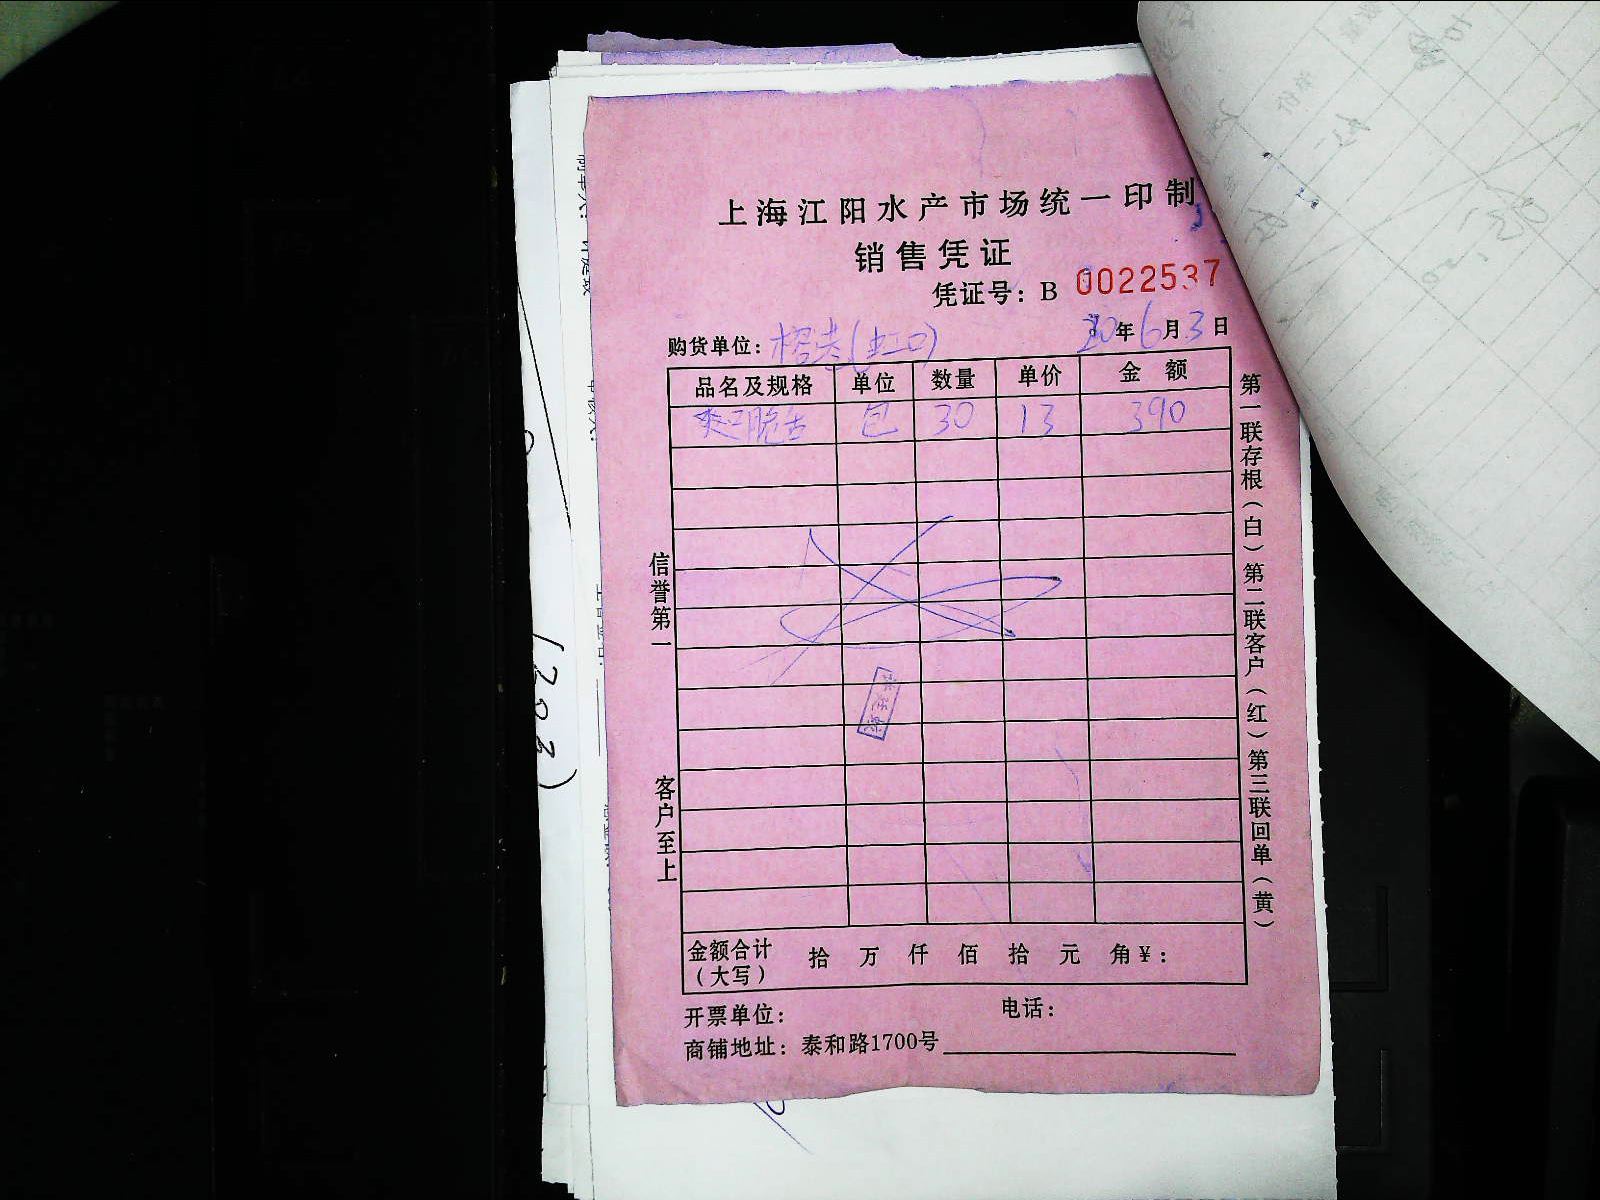 上海江阳水产市场统一印制
销售凭证
凭证号：B 0022537
购货单位：榕港(虹口) 20年6月3日
品名及规格 单位 数量 单价 金额
包 30 13 390
信誉第一
客户至上
第一联存根（白）第二联客户（红）第三联回单（黄）
金额合计 拾 万 仟 佰 拾 元 角￥：
（大写）
开票单位： 电话：
商铺地址：泰和路1700号
(303)